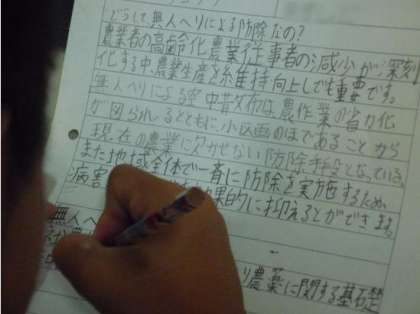 どうして無人ヘリによる防除なの?
農業者の高齢化農業従事者の減少が深刻
化する中、農業生産を維持向上しでも重要です。
無人ヘリによる空中散布は、農作業の省力化
が図られるとともに、小区画のほであることから
現在の農業に欠かせない防除手段となっている。
また地域全体で一斉に防除を実施するため、
病害 効果的に抑えるとができます。
無人ヘ
り農薬に関する基礎